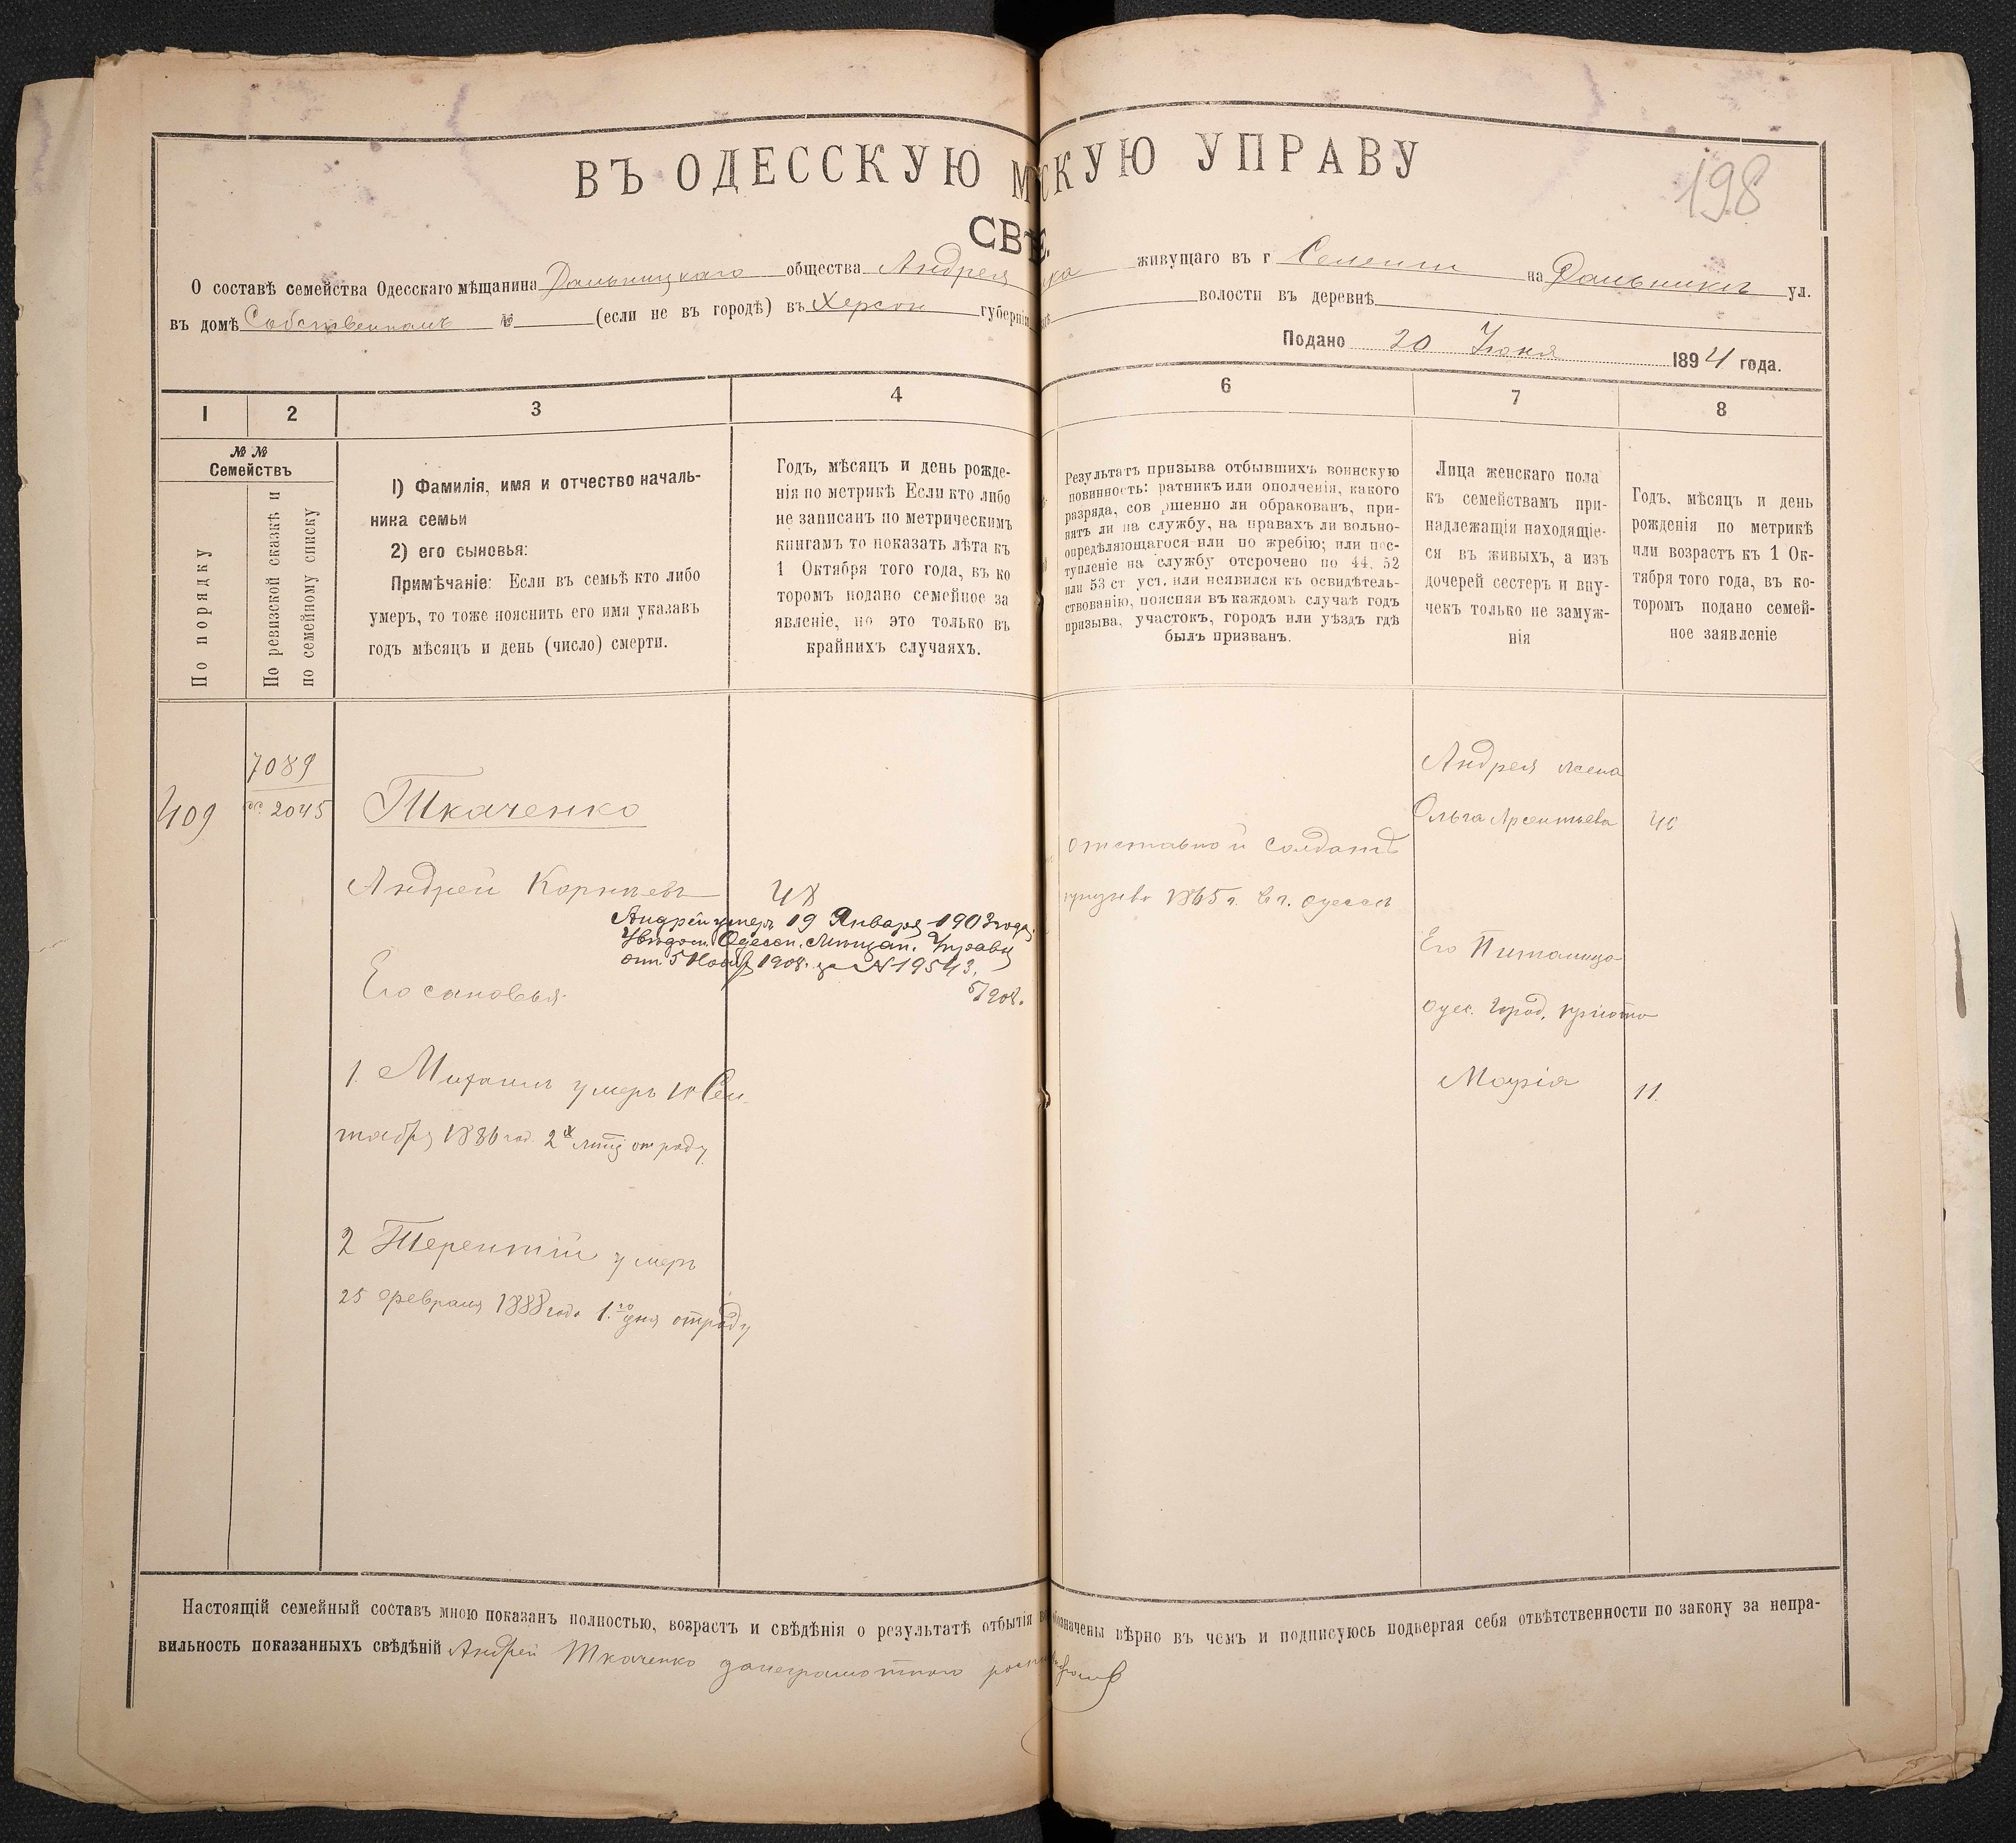 198
ВЪ ОДЕССКУЮ М СКУЮ УПРАВУ
СВѢ
О составѣ семейства Одесскаго мѣщанина Дальницкаго общества Андрея ко живущаго въ г Селении на Дальникъ ул.
въ домѣ Собственномъ № (если не въ городѣ) въ Херсон губерніи волости въ деревнѣ
Подано 20 Июня 1894 года.
1 2 3 4 6 7 8
№ №
Семействъ
По порядку
По ревизской сказкѣ и
по семейному списку
1) Фамилія, имя и отчество началь-
ника семьи
2) его сыновья:
Примѣчаніе: Если въ семьѣ кто либо
умеръ, то тоже пояснить его имя указавъ
годъ мѣсяцъ и день (число) смерти.
Годъ, мѣсяцъ и день рожде-
нія по метрикѣ Если кто либо
не записанъ по метрическимъ
книгамъ то показать лѣта къ
1 Октября того года, въ ко
торомъ подано семейное за
явленіе, но это только въ
крайнихъ случаяхъ.
Результатъ призыва отбывшихъ воинскую
повинность: ратникъ или ополченія, какого
разряда, сов ршенно ли обракованъ, при-
нятъ ли на службу, на правахъ ли вольно-
опредѣляющагося или по жребію; или пос-
тупленіе на службу отсрочено по 44. 52
или 53 ст уст. или неявился къ освидѣтель-
ствованію, поясняя въ каждомъ случаѣ годъ
призыва, участокъ, городъ или уѣздъ гдѣ
былъ призванъ.
Лица женскаго пола
къ семействамъ при-
надлежащія находящіе-
ся въ живыхъ, а изъ
дочерей сестеръ и вну-
чекъ только не замуж-
нія
Годъ, мѣсяцъ и день
рожденія по метрикѣ
или возрастъ къ 1 Ок-
тября того года, въ ко-
торомъ подано семей-
ное заявленіе
409
7089
2045
Ткаченко
Андрей Корнѣевъ 48
Андрей умеръ 19 Января 1903 года.
Увѣдом. Одесск. Мѣщан. Управы
отп. 5 Нояб 1908. за № 19543.
5/908.
Его сановья
1. Михаилъ умеръ 10 Сен
тября 1886 год. 2х лѣтъ отроду
2 Терентій умеръ
25 Февраля 1888 года 1.го дня отроду
отставной солдатъ
призыва 1865 г. в г. Одессѣ
Андрея жена
Ольга Арсентьева 40
Его Питомица
Одес. Город. пріюта
Марія 11.
Настоящій семейный составъ мною показанъ полностью, возрастъ и свѣдѣнія о результатѣ отбытія означены вѣрно въ чемъ и подписуюсь подвергая себя отвѣтственности по закону за непра-
вильность показанныхъ свѣдѣній Андрей Ткаченко занеграмотного